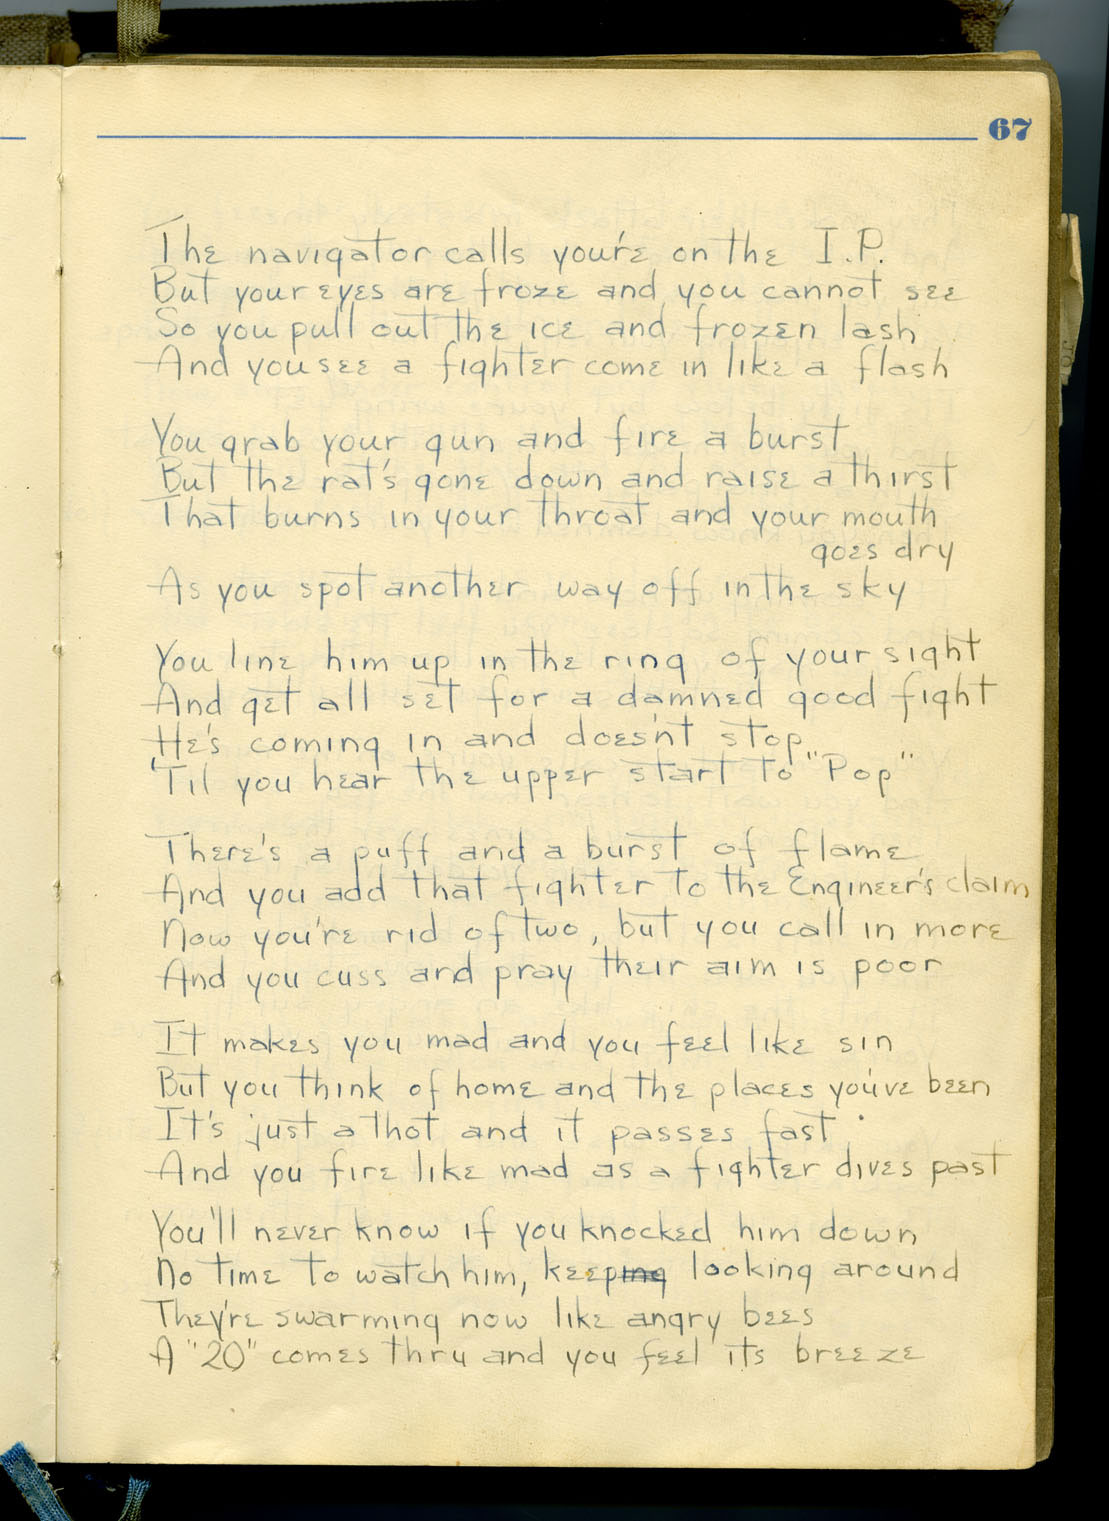 67
The navigator calls you're on the I.P.
But your eyes are froze and you cannot see
So you pull out the ice and frozen lash
And you see a fighter come in like a flash
You grab your gun and fire a burst
But the rat's gone down and raise a thirst
That burns in your throat and your mouth
goes dry
As you spot another way off in the sky
You line him up in the ring of your sight
And get all set for a damned good fight
He's coming in and does'nt stop
'Til you hear the upper start to "Pop"
There's a puff and a burst of flame
And you add that fighter to the Engineer's claim
Now you're rid of two, but you call in more
And you cuss and pray their aim is poor
It makes you mad and you feel like sin
But you think of home and the places you've been
It's just a thot and it passes fast
And you fire like mad as a fighter dives past
You'll never know if you knocked him down
No time to watch him, keeping looking around
They're swarming now like angry bees
A "20" comes thru and you feel its breeze